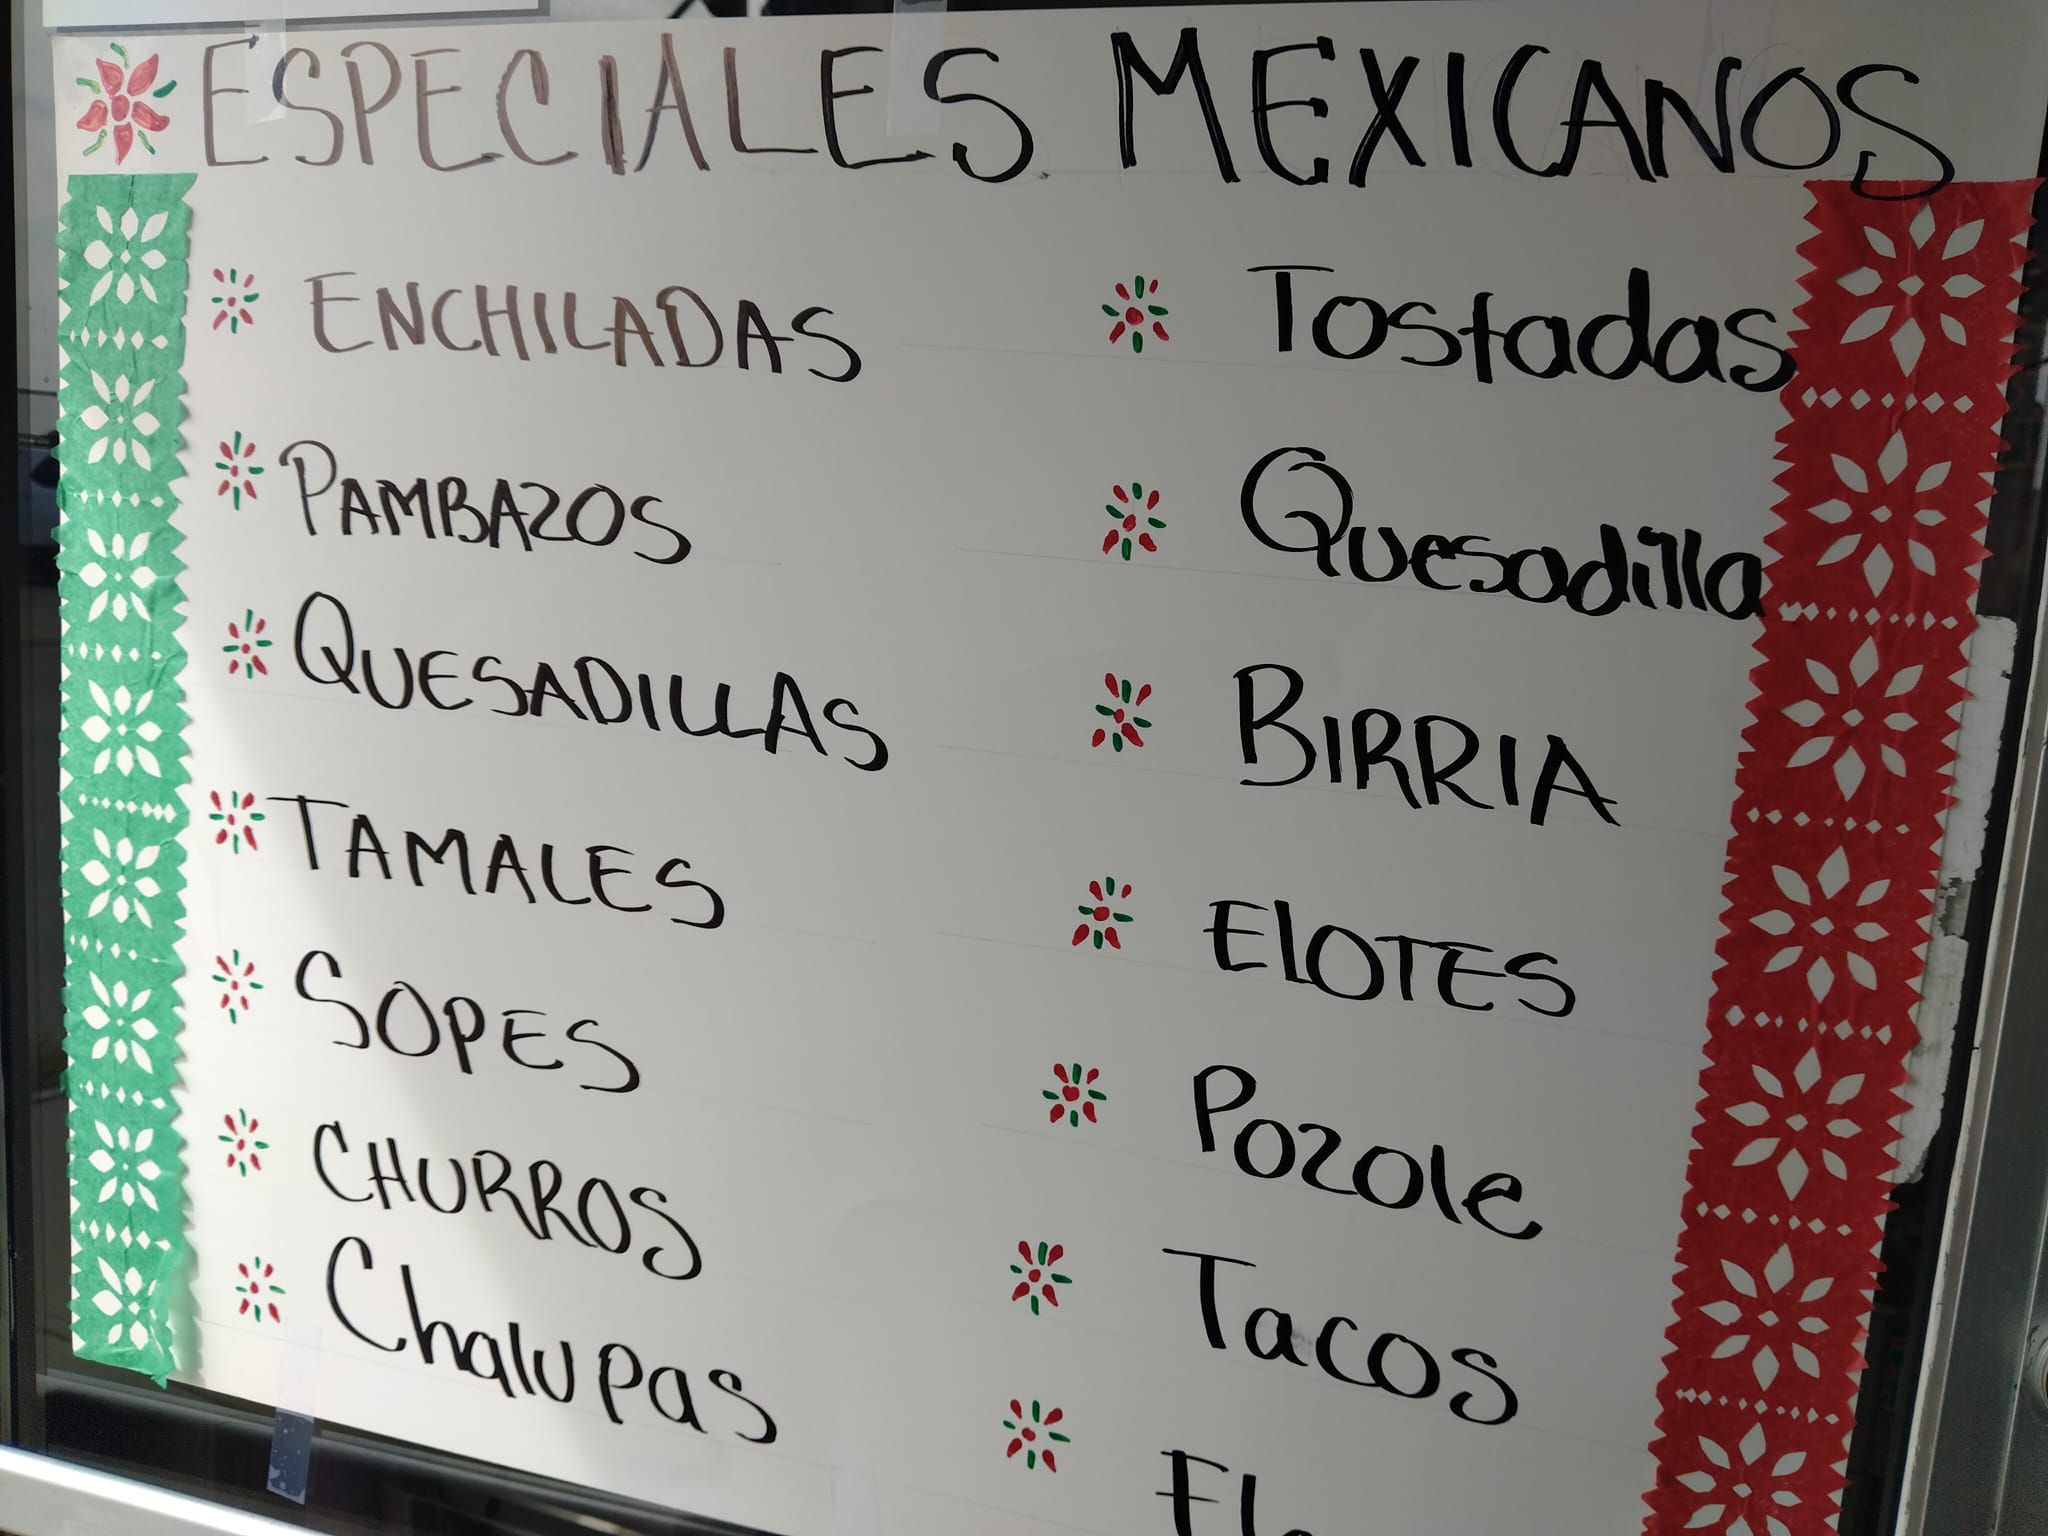 ESPECIALES MEXICANOS
ENCHILADAS
PAMBAZOS
QUESADILLAS
TAMALES
SOPES
CHURROS
Chalupas
Tostadas
Quesadilla
BIRRIA
ElOTES
Pozole
Tacos